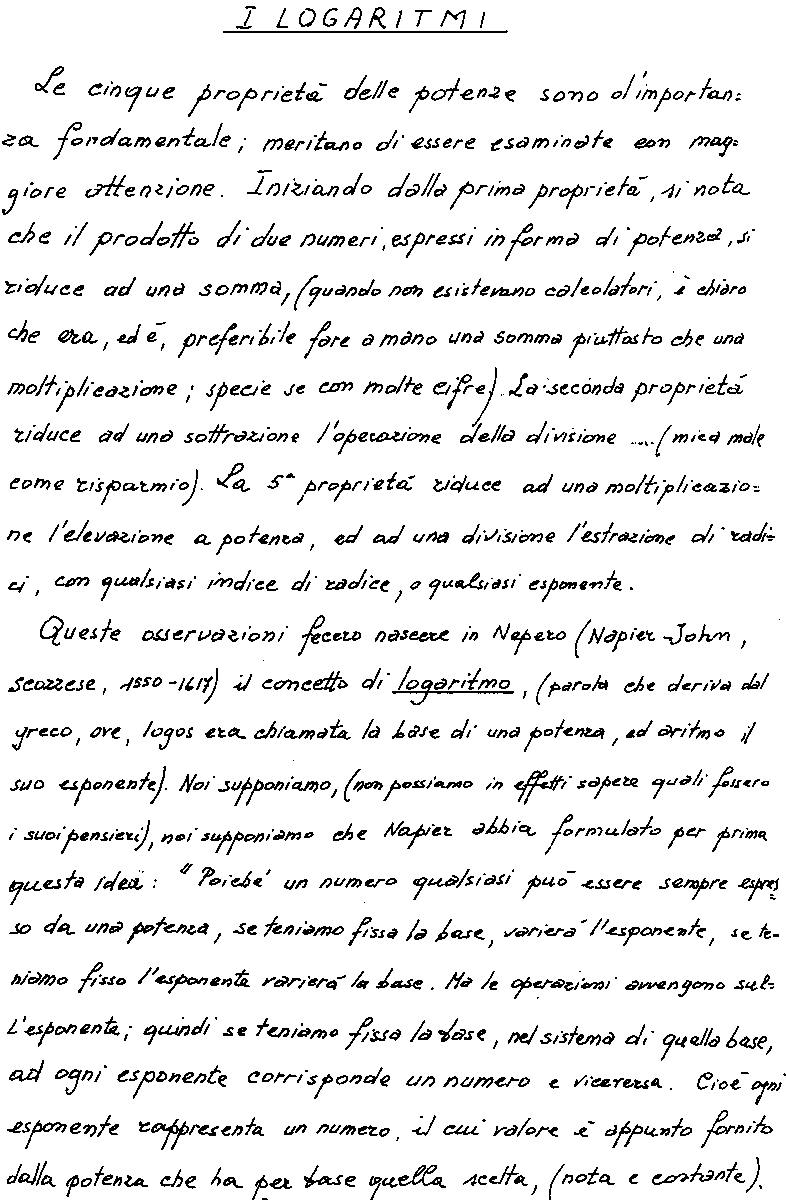 I LOGARITMI
Le cinque proprietà delle potenze sono d'importan=
za fondamentale; meritano di essere esaminate con mag=
giore attenzione. Iniziando dalla prima proprietà, si nota
che il prodotto di due numeri, espressi in forma di potenza, si
riduce ad una somma, (quando non esistevano calcolatori, è chiaro
che era, ed è, preferibile fare a mano una somma piuttosto che una
moltiplicazione; specie se con molte cifre). La seconda proprietà
riduce ad una sottrazione l'operazione della divisione .... (mica male
come risparmio). La 5ª proprietà riduce ad una moltiplicazio=
ne l'elevazione a potenza, ed ad una divisione l'estrazione di radi=
ci, con qualsiasi indice di radice, o qualsiasi esponente.
Queste osservazioni fecero nascere in Nepero (Napier-John,
scozzese, 1550-1617) il concetto di logaritmo, (parola che deriva dal
greco, ove, logos era chiamata la base di una potenza, ed aritmo il
suo esponente). Noi supponiamo, (non possiamo in effetti sapere quali fossero
i suoi pensieri), noi supponiamo che Napier abbia formulato per prima
questa idea: "Poiché un numero qualsiasi può essere sempre espres=
so da una potenza, se teniamo fissa la base, varierà l'esponente, se te-
niamo fisso l'esponente varierà la base. Ma le operazioni avvengono sul=
l'esponente; quindi se teniamo fissa la base, nel sistema di quella base,
ad ogni esponente corrisponde un numero e viceversa. Cioè ogni
esponente rappresenta un numero, il cui valore è appunto fornito
dalla potenza che ha per base quella scelta, (nota e costante).